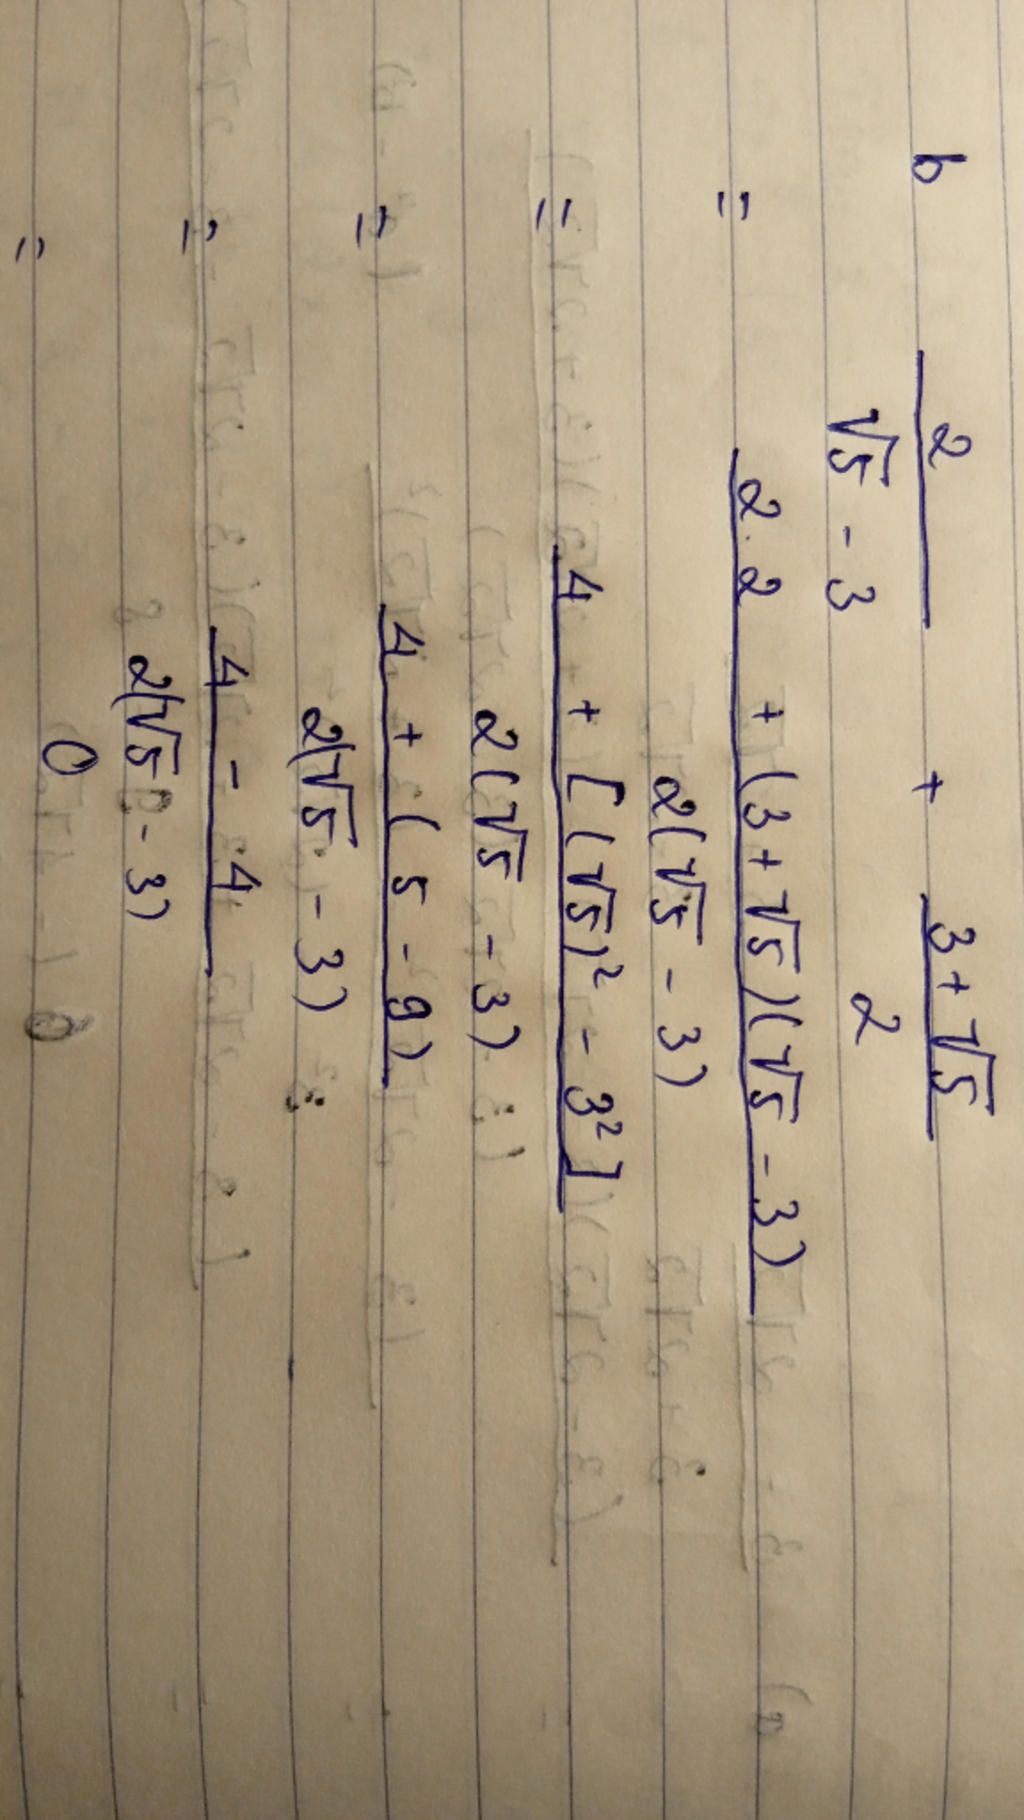 b 2/(√5 - 3) + (3 + √5)/2
= (2.2 + (3 + √5)(√5 - 3))/(2(√5 - 3))
= (4 + [(√5)² - 3²])/(2(√5 - 3))
= (4 + (5 - 9))/(2(√5 - 3))
= (4 - 4)/(2(√5 - 3))
= 0